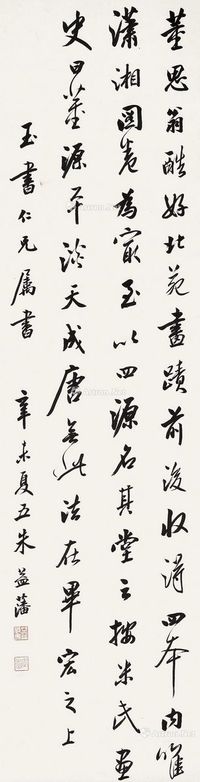 董思翁酷好北苑畫蹟前後收得四本內唯
瀟湘圖卷為最至以四源名其堂云按米氏畫
史曰董源平淡天成唐無此法在畢宏之上
玉書仁兄属書
辛未夏五朱益藩